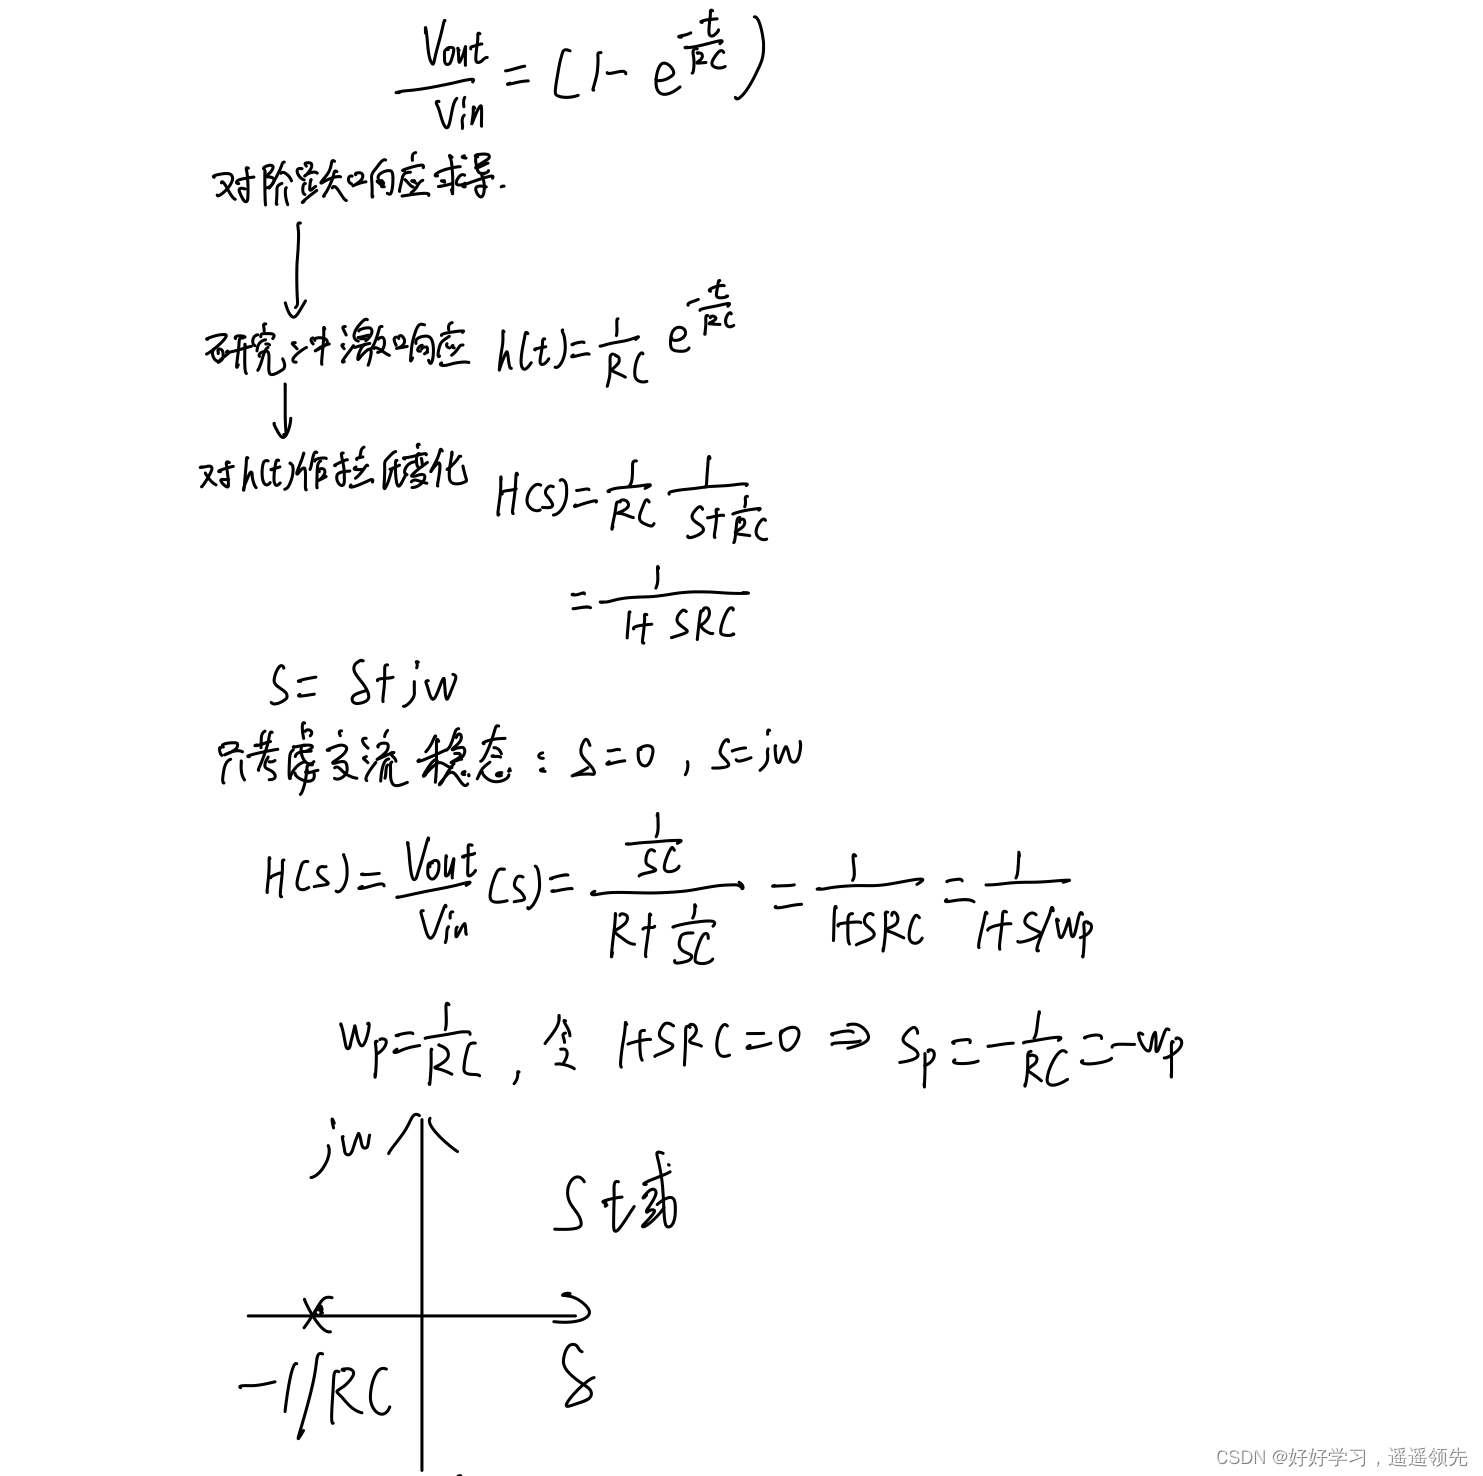 Vout/Vin = (1 - e^(-t/RC))
对阶跃响应求导.
研究冲激响应 h(t) = 1/RC e^(-t/RC)
对h(t)作拉氏变化 H(s) = 1/RC 1/(s+1/RC)
= 1/(1+SRC)
S = δ+jw
只考虑交流稳态：δ=0, s=jw
H(s) = Vout/Vin (s) = (1/SC)/(R+1/SC) = 1/(1+SRC) = 1/(1+S/wp)
wp = 1/RC, 令 1+SRC=0 ⇒ Sp = -1/RC = -wp
jw
S 域
-1/RC
δ
CSDN @好好学习，遥遥领先